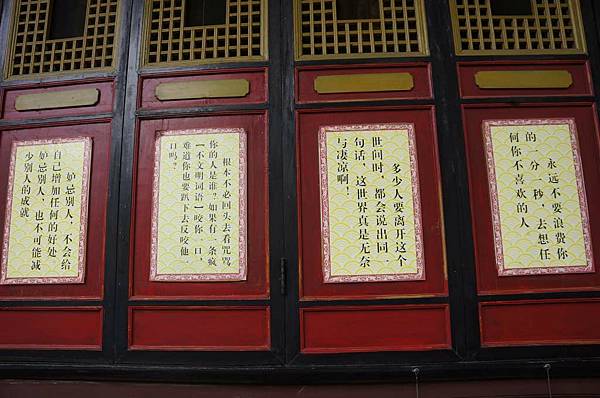 永远不要浪费你
的一分一秒，去想任
何你不喜欢的人
多少人要离开这个
世间时，都会说出同一
句话，这世界真是无奈
与凄凉啊！
根本不必回头去看咒骂
你的人是谁？如果有一条疯
【不文明词语】咬你一口，
难道你也要趴下去反咬他一
口吗？
妒忌别人，不会给
自己增加任何的好处，
妒忌别人，也不可能减
少别人的成就